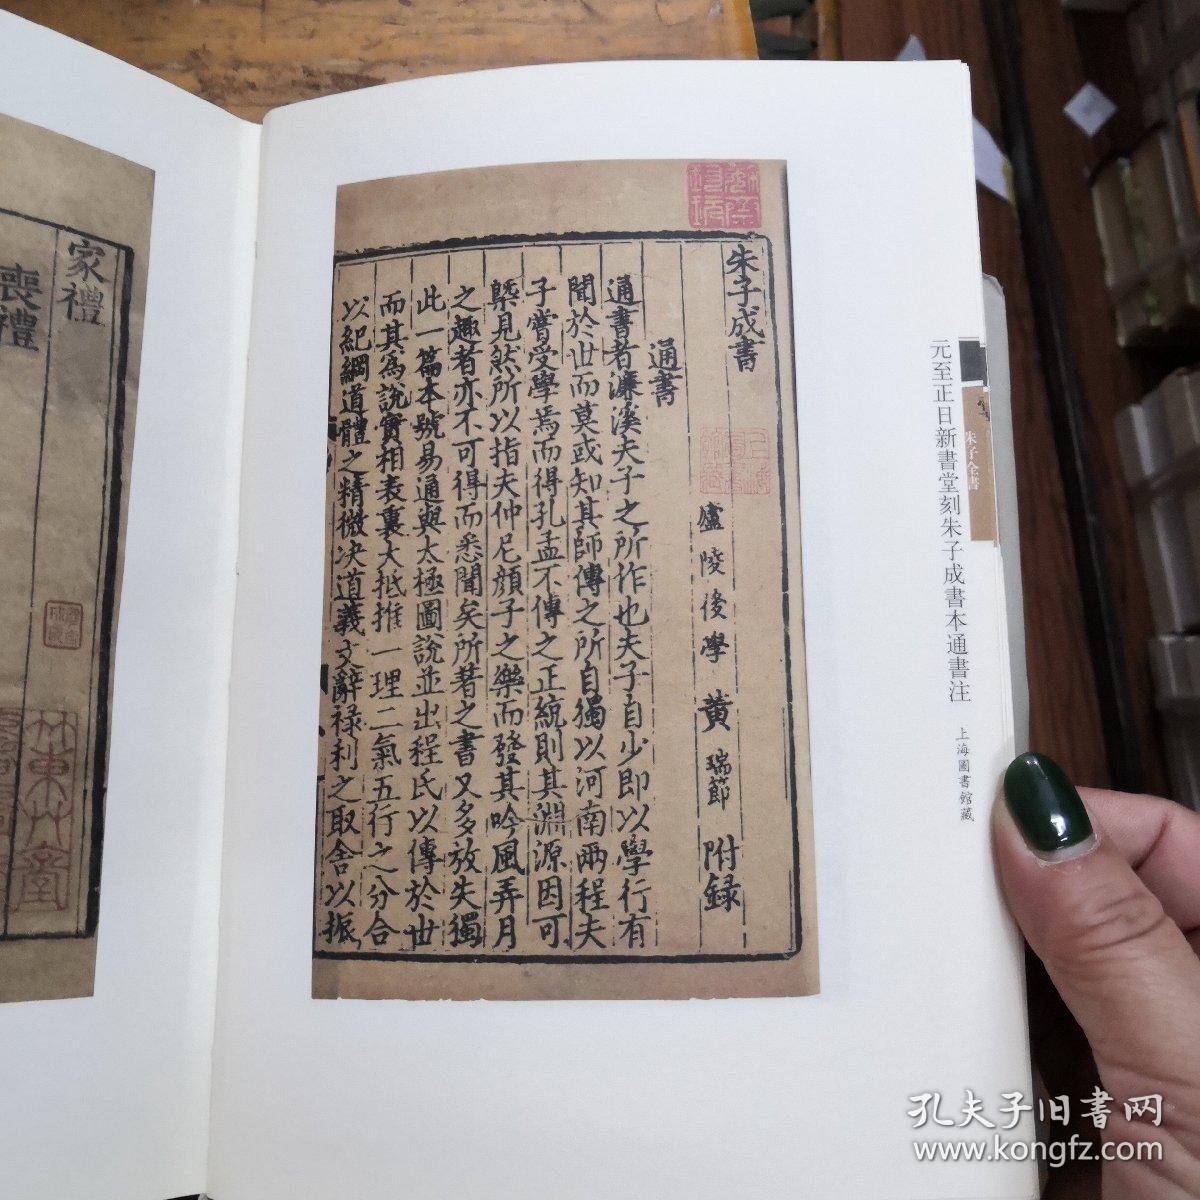 朱子成書
廬陵後學黃瑞節附録
通書
通書者濂溪夫子之所作也夫子自少即以學行有
聞於世而莫或知其師傳之所自獨以河南兩程夫
子嘗受學焉而得孔孟不傳之正統則其淵源因可
槩見然所以指夫仲尼顔子之樂而發其吟風弄月
之趣者亦不可得而悉聞矣所著之書又多放失獨
此一篇本號易通與太極圖說並出程氏以傳於世
而其為說實相表裏大抵推一理二氣五行之分合
以紀綱道體之精微决道義文辭禄利之取舍以振
元至正日新書堂刻朱子成書本通書注
上海圖書館藏
朱子全書
家禮
喪禮
孔夫子旧书网
www.kongfz.com